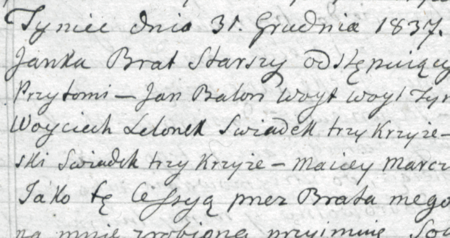 Tyniec dnia 31. Grudnia 1837.
Janka Brat Starszy odstępuiący
Przytomi – Jan Baloń Woyt woyt Tyn
Woyciech Lelonek Swiadek trzy Krzyże –
ski Swiadek trzy Krzyże – Maciey Marcz
Jako tę Cessyą przez Brata mego
na mnie zrobioną przyimuię